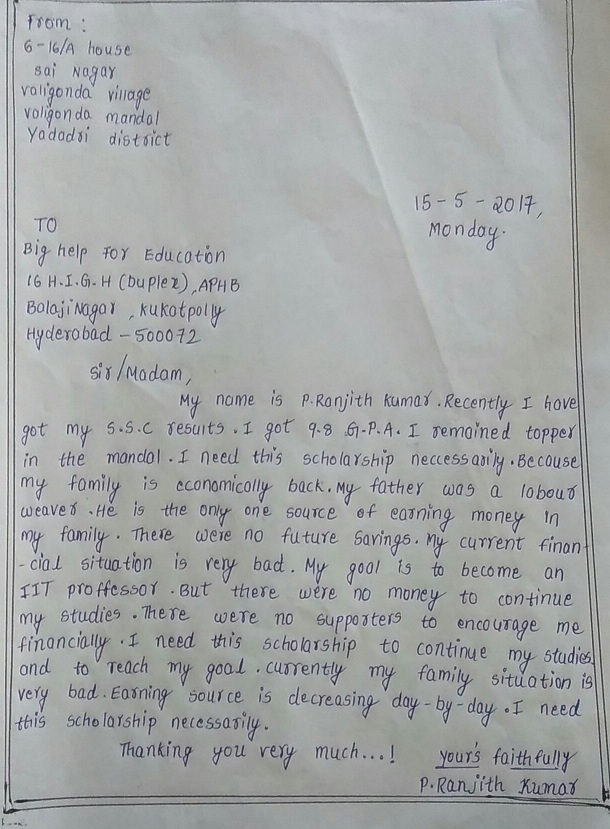 From :
6-16/A house
sai Nagar
valigonda village
valigonda mandal
Yadadri district
15-5-2017,
Monday.
TO
Big help For Education
16 H.I.G.H (Duplex), APHB
Balaji Nagar, kukatpally
Hyderabad - 500072
Sir/Madam,
My name is P.Ranjith kumar. Recently I have
got my S.S.C results. I got 9.8 G.P.A. I remained topper
in the mandal. I need this scholarship neccessarily. Because
my family is economically back. My father was a labour
weaver. He is the only one source of earning money in
my family. There were no future savings. My current finan-
-cial situation is very bad. My goal is to become an
IIT proffessor. But there were no money to continue
my studies. There were no supporters to encourage me
financially. I need this scholarship to continue my studies
and to reach my goal. currently my family situation is
very bad. Earning source is decreasing day-by-day. I need
this scholarship necessarily.
Thanking you very much...!
your's faithfully
P.Ranjith Kumar